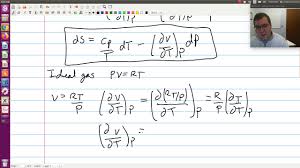 ∂S = C_P/T dT - (∂V/∂T)_P dP
Ideal gas PV=RT
V = RT/P (∂V/∂T)_P = (∂(RT/P)/∂T)_P = R/P (∂T/∂T)_P
(∂V/∂T)_P =